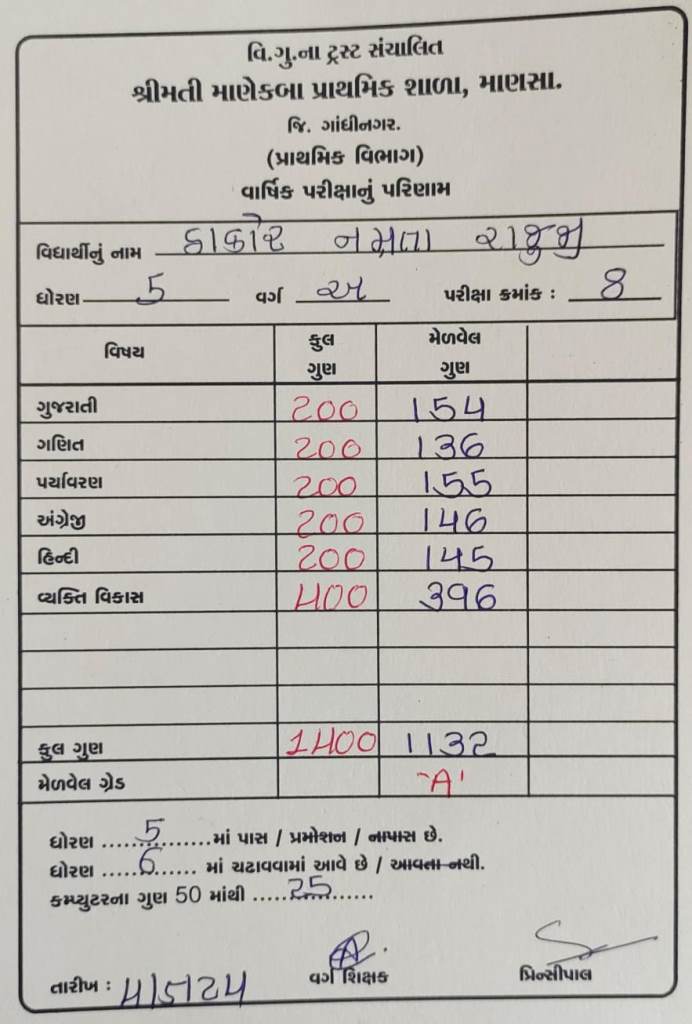 વિ.ગુ.ના ટ્રસ્ટ સંચાલિત
શ્રીમતી માણેકબા પ્રાથમિક શાળા, માણસા.
જિ. ગાંધીનગર.
(પ્રાથમિક વિભાગ)
વાર્ષિક પરીક્ષાનું પરિણામ
વિદ્યાર્થીનું નામ ઠાકોર નમ્રતા રાજુજી
ધોરણ 5 વર્ગ અ પરીક્ષા ક્રમાંક : 8
વિષય કુલ ગુણ મેળવેલ ગુણ
ગુજરાતી 200 154
ગણિત 200 136
પર્યાવરણ 200 155
અંગ્રેજી 200 146
હિન્દી 200 145
વ્યક્તિ વિકાસ 400 396
કુલ ગુણ 1400 1132
મેળવેલ ગ્રેડ 'A'
ધોરણ ...5...માં પાસ / પ્રમોશન / નાપાસ છે.
ધોરણ ...6... માં ચઢાવવામાં આવે છે / આવતા નથી.
કમ્પ્યુટરના ગુણ 50 માંથી ...25...
તારીખ : 4/5/24 વર્ગ શિક્ષક પ્રિન્સીપાલ